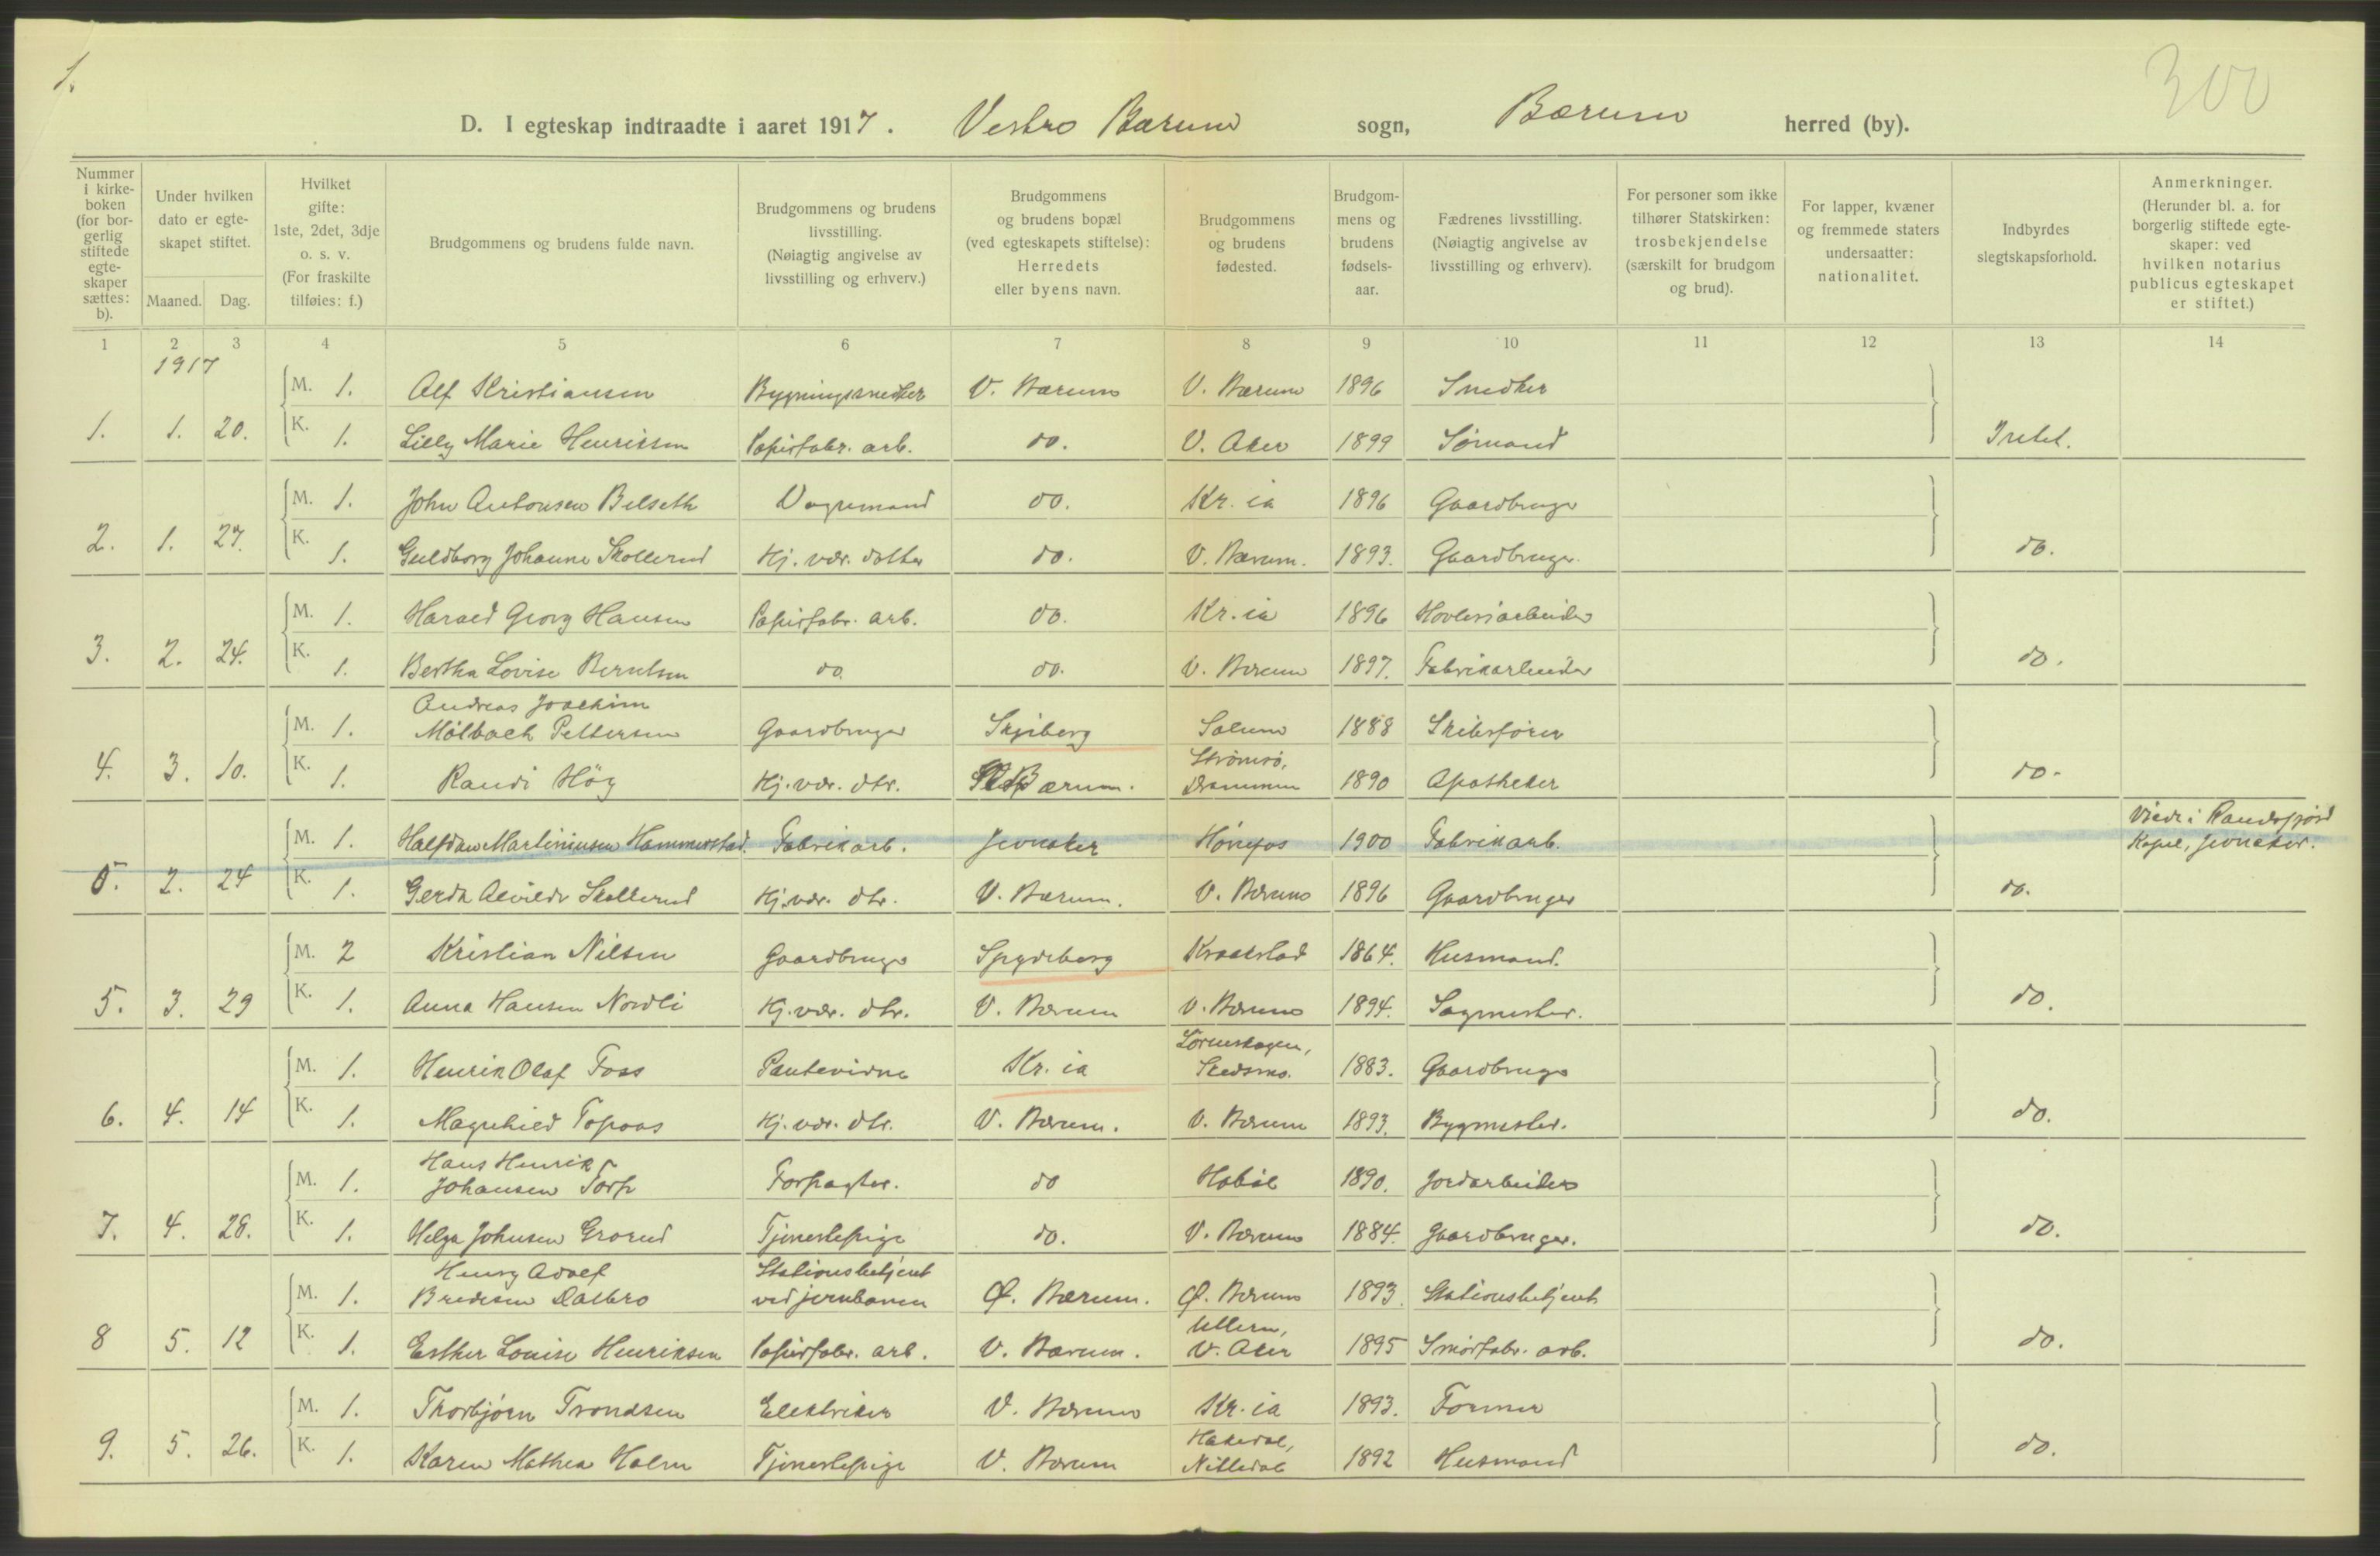 1.
300
D. I egteskap indtraadte i aaret 1917. Vestre Bærum sogn, Bærum herred (by).
Nummer i kirke-boken (for bor-gerlig stiftede egte-skaper sættes: b).
Under hvilken dato er egte-skapet stiftet.
Maaned. Dag.
Hvilket gifte: 1ste, 2det, 3dje o. s. v. (For fraskilte tilføies: f.)
Brudgommens og brudens fulde navn.
Brudgommens og brudens livsstilling. (Nøiagtig angivelse av livsstilling og erhverv.)
Brudgommens og brudens bopæl (ved egteskapets stiftelse): Herredets eller byens navn.
Brudgommens og brudens fødested.
Brudgom-mens og brudens fødsels-aar.
Fædrenes livsstilling. (Nøiagtig angivelse av livsstilling og erhverv).
For personer som ikke tilhører Statskirken: trosbekjendelse (særskilt for brudgom og brud).
For lapper, kvæner og fremmede staters undersaatter: nationalitet.
Indbyrdes slegtskapsforhold.
Anmerkninger. (Herunder bl. a. for borgerlig stiftede egte-skaper: ved hvilken notarius publicus egteskapet er stiftet.)
1 2 3 4 5 6 7 8 9 10 11 12 13 14
1917
M. 1. Alf Kristiansen Bygningssnedker V. Bærum V. Bærum 1896 Snedker
1. 1. 20. K. 1. Lilly Marie Henriksen Papirfabr. arb. do. V. Aker 1899 Sømand Intet.
M. 1. John Antonsen Belseth Vognmand do. Kr.ia 1896 Gaardbruger
2. 1. 27. K. 1. Guldborg Johanne Skollerud Hj. vær. datter do. V. Bærum. 1893. Gaardbruger. do.
M. 1. Harald Georg Hansen Papirfabr. arb. do. Kr.ia 1896 Høvleriarbeider
3. 2. 24. K. 1. Bertha Lovise Berntsen do. do. V. Bærum 1897. Fabrikarbeider do.
Andreas Joachim
M. 1. Mølbach Pettersen Gaardbruger Skjeberg Solum 1888 Skibsfører
Strømsø,
4. 3. 10. K. 1. Randi Høg Hj. vær. dtr. Bærum. Drammen 1890 Apotheker do.
Viede i Randsfjord
M. 1. Halfdan Martiniusen Hammerstad. Fabrikarb. Jevnaker Hønefos 1900 Fabrikarb. Kapel, Jevnaker.
0. 2. 24 K. 1. Gerda Alvilde Skollerud Hj. vær. dtr. V. Bærum. V. Bærum 1896 Gaardbruger do.
M. 2 Kristian Nilsen Gaardbruger Spydeberg Kraakstad 1864. Husmand.
5. 3. 29 K. 1. Anna Hansen Nordli Hj. vær. dtr. V. Bærum V. Bærum 1894. Sagmester. do.
Lørenskogen,
M. 1. Henrik Olaf Foss Kr.ia Skedsmo. 1883. Gaardbruger
6. 4. 14 K. 1. Magnhild Topaas Hj. vær. dtr. V. Bærum. V. Bærum 1893. Bygmester. do.
Hans Henrik
M. 1. Johansen Torp Forpagter. do Hobøl 1890. Jordarbeider
7. 4. 28. K. 1. Helga Johnsen Grorud Tjenestepige do. V. Bærum 1884. Gaardbruger. do.
Henry Adolf Stationsbetjent
M. 1. Bredesen Dalbro ved jernbanen Ø. Bærum. Ø. Bærum 1893. Stationsbetjent
Ullern,
8 5. 12 K. 1. Esther Louise Henriksen Papirfabr. arb. V. Bærum. V. Aker 1895 Smørfabr. arb. do.
M. 1. Thorbjørn Trondsen Elektriker V. Bærum Kr.ia 1893. Former
Hakedal,
9. 5. 26. K. 1. Karen Mathea Holm Tjenestepige V. Bærum Nittedal 1892 Husmand do.